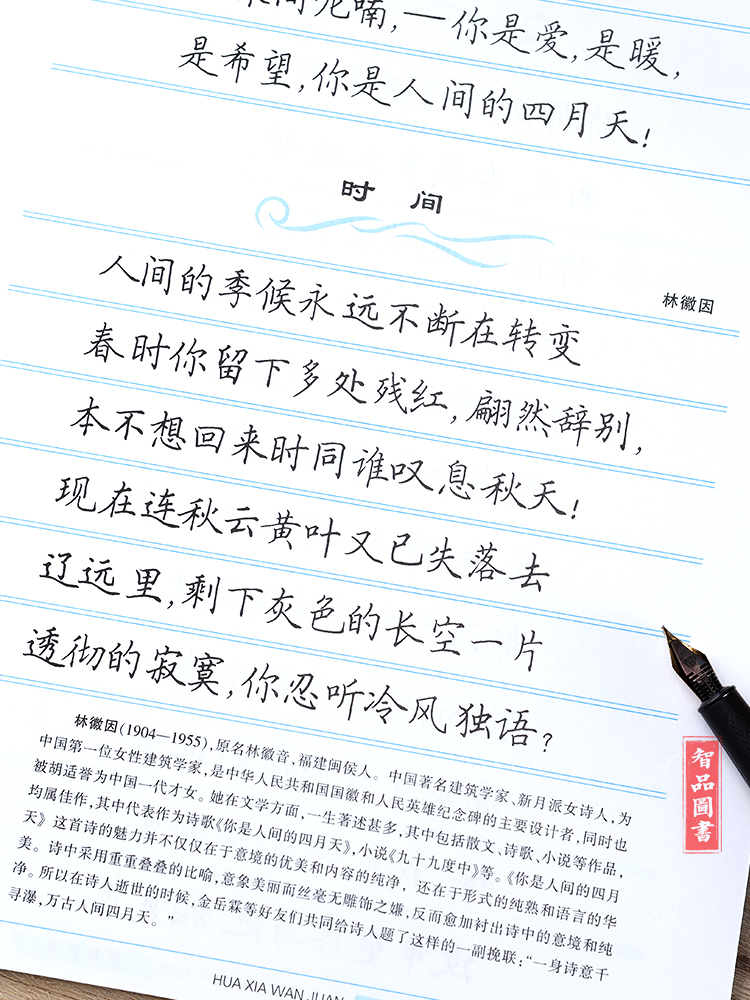 呢喃,—你是爱,是暖,
是希望,你是人间的四月天!
时间
林徽因
人间的季候永远不断在转变
春时你留下多处残红,翩然辞别,
本不想回来时同谁叹息秋天!
现在连秋云黄叶又已失落去
辽远里,剩下灰色的长空一片
透彻的寂寞,你忍听冷风独语?
林徽因(1904—1955),原名林徽音,福建闽侯人。中国著名建筑学家、新月派女诗人,为
中国第一位女性建筑学家,是中华人民共和国国徽和人民英雄纪念碑的主要设计者,同时也
被胡适誉为中国一代才女。她在文学方面,一生著述甚多,其中包括散文、诗歌、小说等作品,
均属佳作,其中代表作为诗歌《你是人间的四月天》,小说《九十九度中》等。《你是人间的四月
天》这首诗的魅力并不仅仅在于意境的优美和内容的纯净,还在于形式的纯熟和语言的华
美。诗中采用重重叠叠的比喻,意象美丽而丝毫无雕饰之嫌,反而愈加衬出诗中的意境和纯
净。所以在诗人逝世的时候,金岳霖等好友们共同给诗人题了这样的一副挽联:“一身诗意千
寻瀑,万古人间四月天。”
智品圖書
HUA XIA WAN JUAN